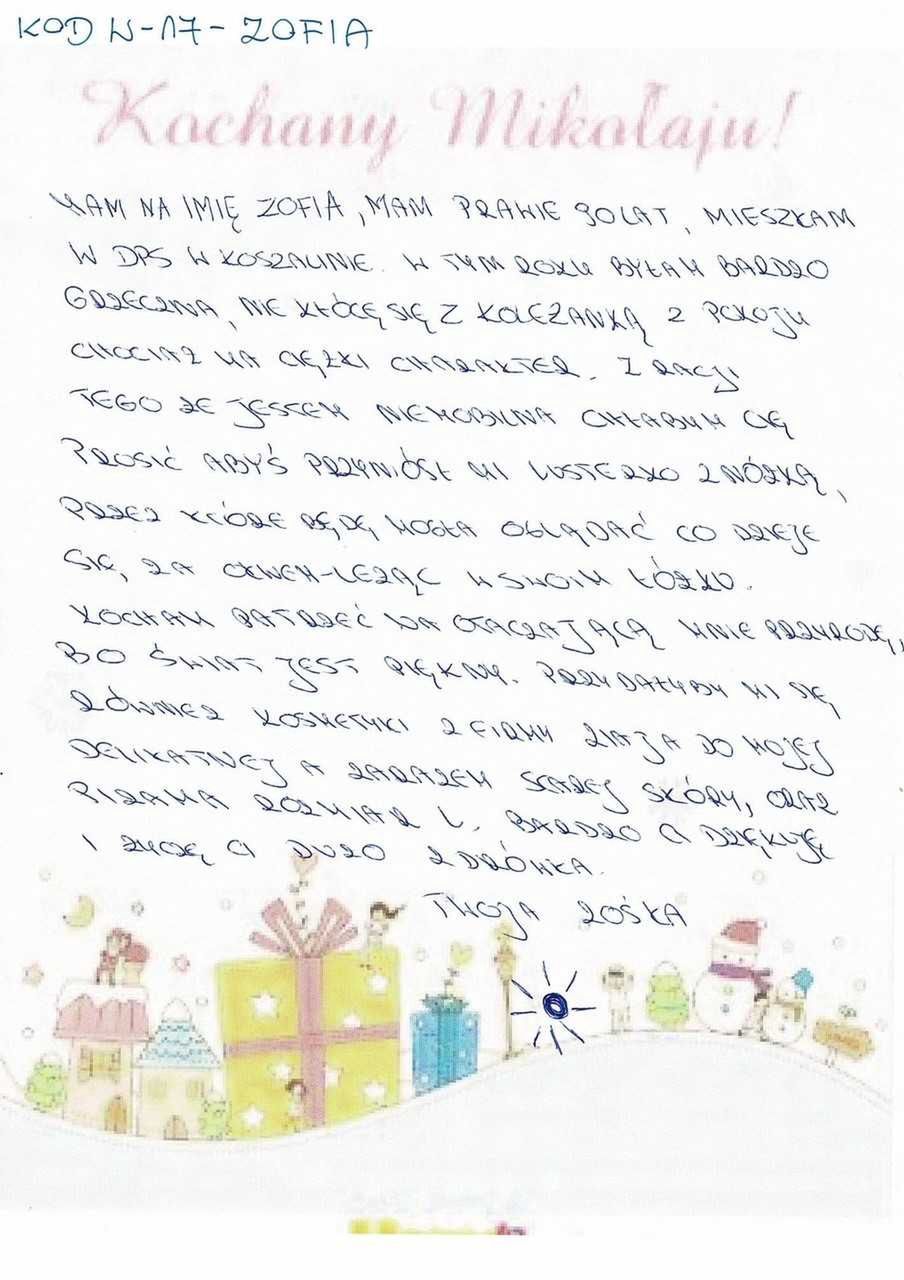 KOD W-17- ZOFIA
Kochany Mikołaju!
MAM NA IMIĘ ZOFIA, MAM PRAWIE 90 LAT, MIESZKAM
W DPS W KOSZALINIE. W TYM ROKU BYŁAM BARDZO
GRZECZNA, NIE KŁÓCĘ SIĘ Z KOLEŻANKĄ Z POKOJU
CHOCIAŻ MA CIĘŻKI CHARAKTER. Z RACJI
TEGO ŻE JESTEM NIEMOBILNA CHŁABYM CIĘ
PROSIĆ ABYŚ PRZYNIÓSŁ MI LUSTERKO Z NÓŻKĄ,
PRZEZ KTÓRE BĘDĘ MOGŁA OGLĄDAĆ CO DZIEJE
SIĘ, ZA OKNEM-LEŻĄC W SWOIM ŁÓŻKU.
KOCHAM PATRZEĆ NA OTACZAJĄCĄ MNIE PRZYRODĘ,
BO ŚWIAT JEST PIĘKNY. PRZYDAŁYBY MI SIĘ
RÓWNIEŻ KOSMETYKI Z FIRMY ZIAJA DO MOJEJ
DELIKATNEJ A ZARAZEM STAREJ SKÓRY, ORAZ
PIŻAMA ROZMIAR L. BARDZO CI DZIĘKUJĘ
I ŻYCZĘ CI DUŻO ZDRÓWKA.
TWOJA ZOŚKA